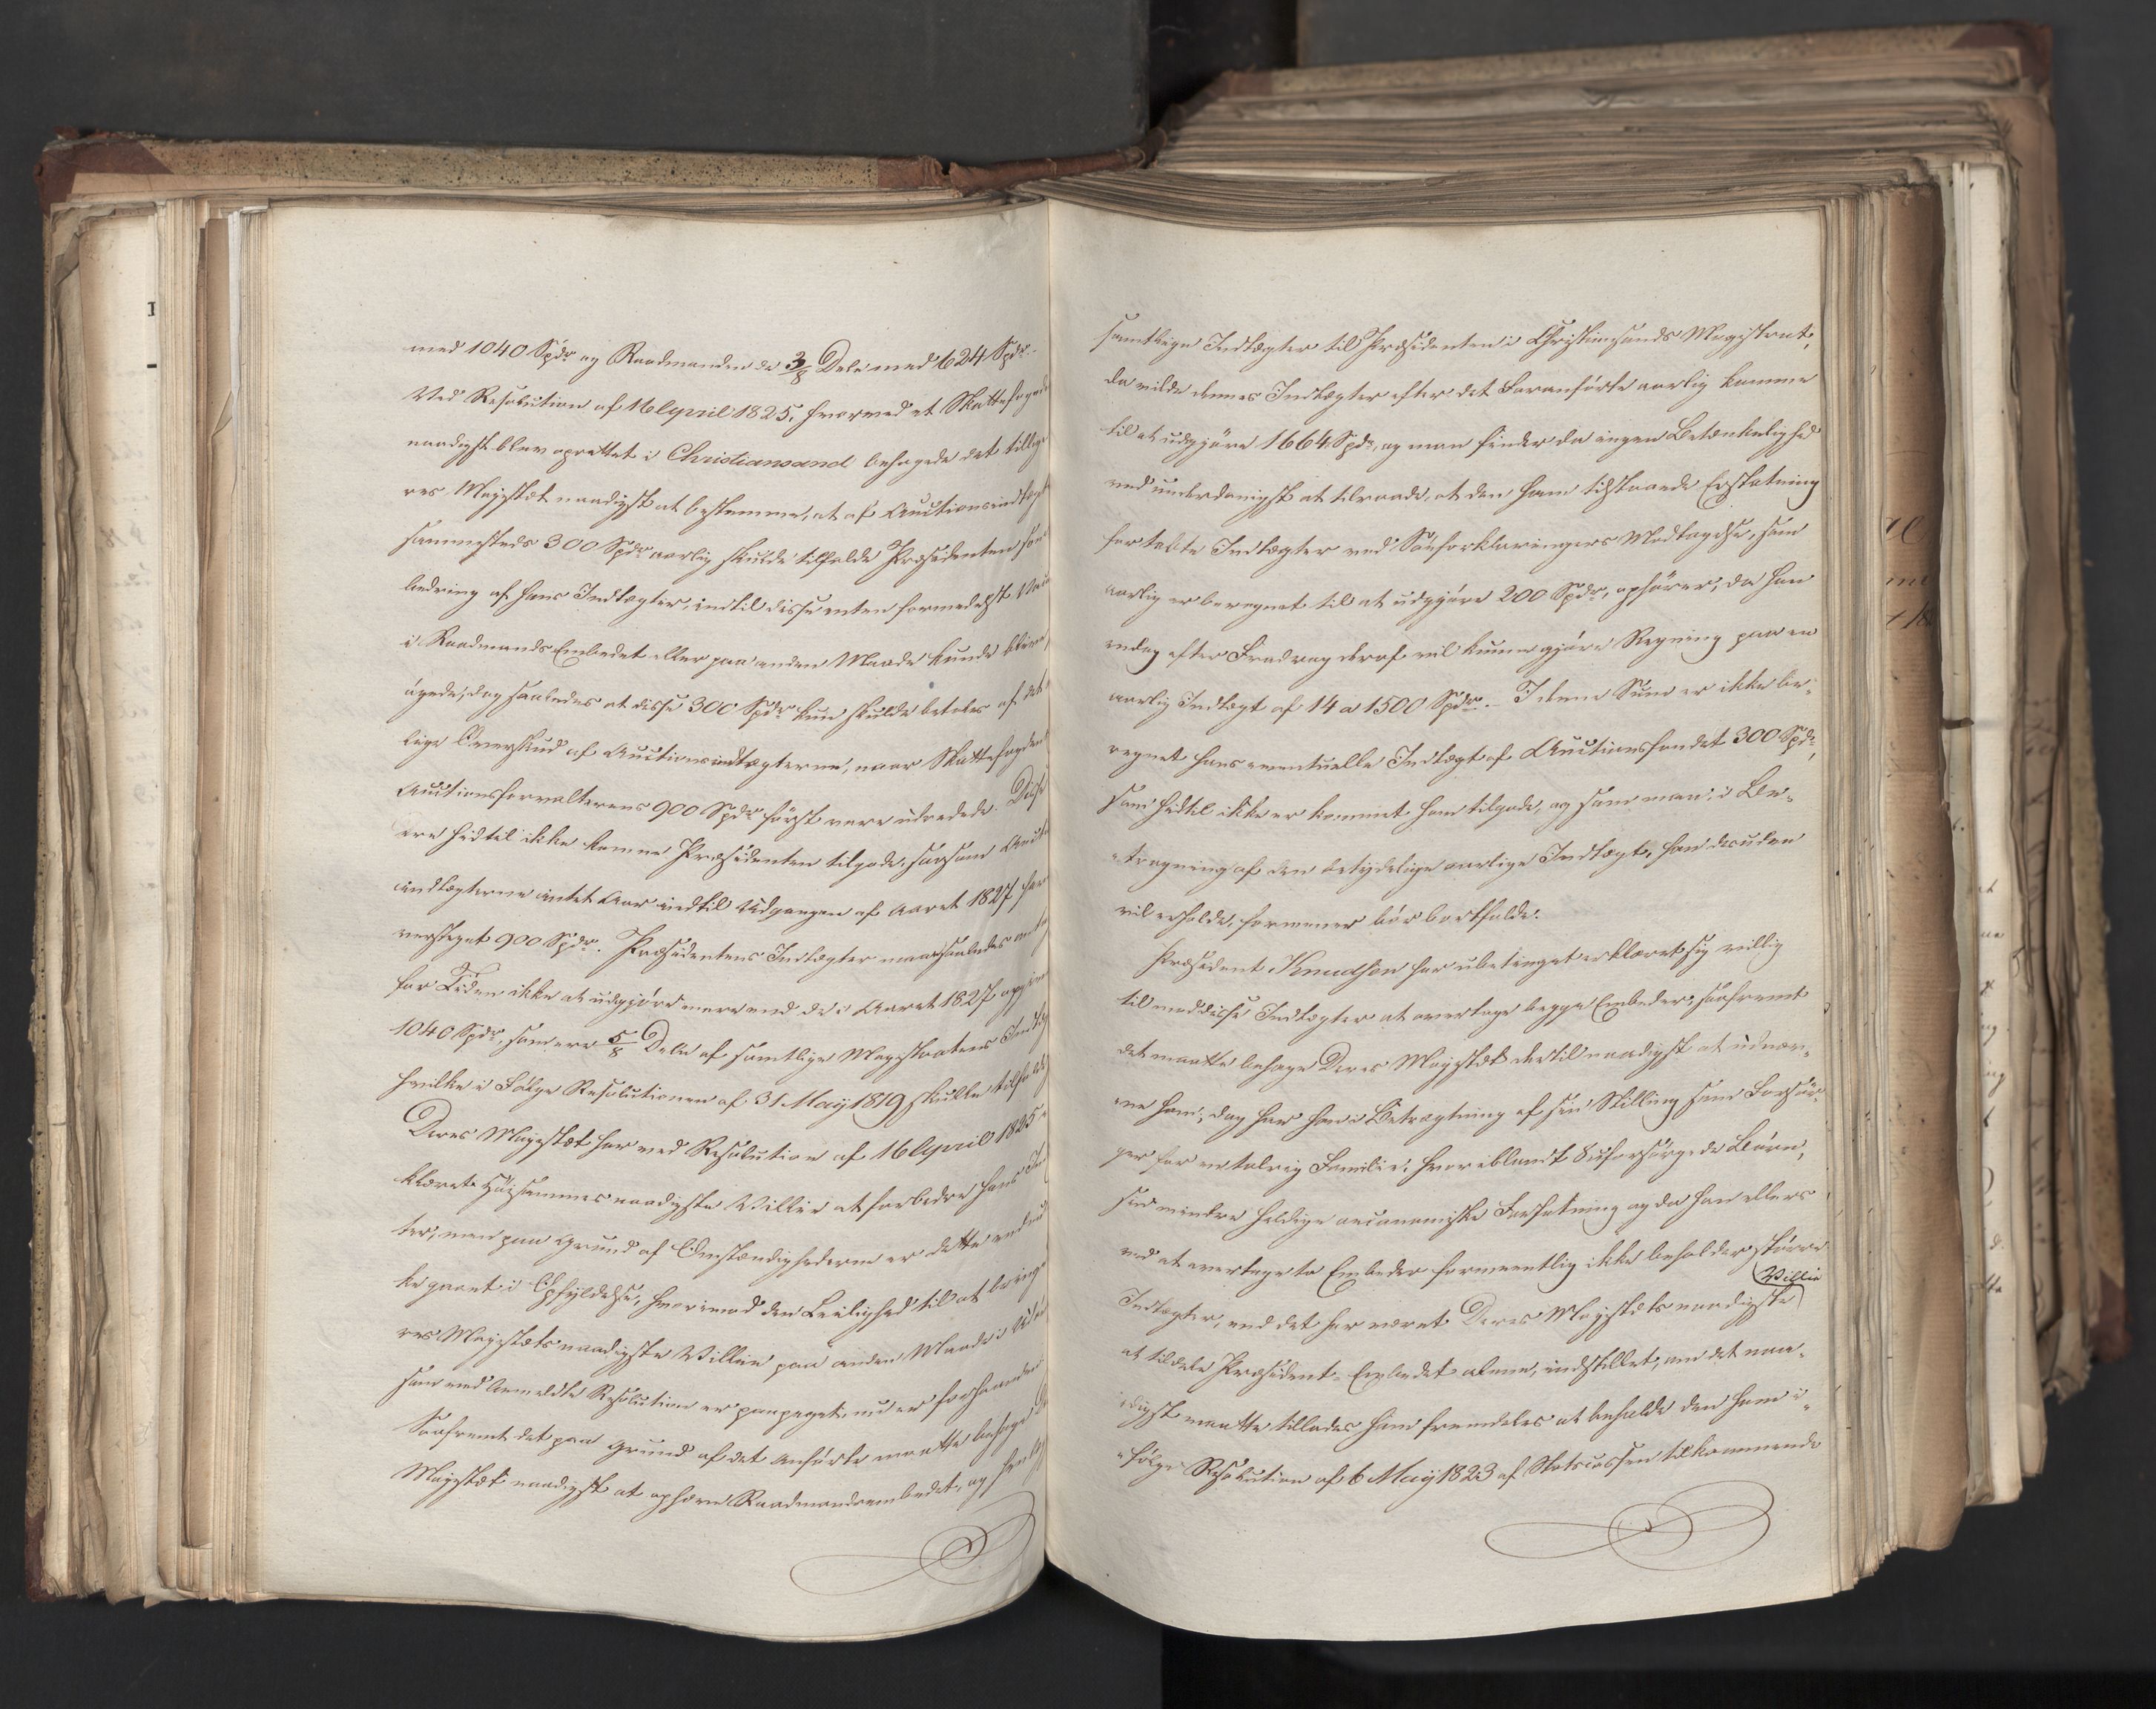 med 1040 Spdr og Raadmanden de 3/8 Dele med 624 Spdr.
Ved Resolution af 16 April 1825, hvorved et Skattefogde
naadigst blev oprettet i Christiansand behagede det tillige
res Majestæt naadigst at bestemme, at af Auctionsindtægt
sammesteds 300 Spdr aarlig skulde tilfalde Præsidenten som
bedring af hans Indtægter, indtil disse enten formedelst Va
i Raadmands Embedet eller paa anden Maade kunde blive
øgede, dog saaledes at disse 300 Spdr kun skulde betales af det
lige Overskud af Auctionsindtægterne, naar Skattefogden
Auctionsforvalterens 900 Spdr først vare udredede. Disse
ere hidtil ikke komne Præsidenten tilgode, saasom Auct
indtægterne intet Aar indtil Udgangen af Aaret 1827 har
versteget 900 Spdr. Præsidentens Indtægter maa saaledes anta
for Tiden ikke at udgjøre mere end de i Aaret 1827 opgivne
1040 Spdr, som ere 5/8 Dele af samtlige Magistratens Indtæg
hvilke i Følge Resolutionen af 31 May 1819 skulle tilfalde
Deres Majestæt har ved Resolution af 16 April 1825 er
klæret Høistsammes naadigste Villie at forbedre hans In
ter, men paa Grund af Omstændighederne er dette endnu
ke gaaet i Opfyldelse, hvorimod den Leilighed til at bringe
res Majestæts naadigste Villie paa anden Maade i Udfø
som ved bemeldte Resolution er paapeget, nu er forhaanden
Saafremt det paa Grund af det Anførte maatte behage De
Majestæt naadigst at ophæve Raadmandsembedet, og henlæ
samtlige Indtægter til Præsidenten i Christiansands Magistrat,
da vilde dennes Indtægter efter det Foranførte aarlig komme
til at udgjøre 1664 Spdr, og man finder da ingen Betænkelighed
ved underdanigst at tilraade, at den ham tilstaaede Erstatning
for tabte Indtægter ved Søeforklaringers Modtagelse, som
aarlig er beregnet til at udgjøre 200 Spdr, ophører, da han
endog efter Fradrag deraf vil kunne gjøre Regning paa en
aarlig Indtægt af 14 a 1500 Spdr. I denne Sum er ikke be-
regnet hans eventuelle Indtægt af Auctionsfondet 300 Spdr,
som hidtil ikke er kommet ham tilgode, og som man i Be-
tragtning af den betydelige aarlige Indtægt, han desuden
vil erholde, formener bør bortfalde.
Præsident Knudsen har ubetinget erklæret sig villig
til med disse Indtægter at overtage begge Embeder, saafremt
det maatte behage Deres Majestæt dertil naadigst at udnæv-
ne ham; dog har han i Betragtning af sin Stilling som Forsør-
ger for en talrig Familie, hvoriblandt 8 uforsørgede Børn,
sin mindre heldige oeconomiske Forfatning og da han ellers
ved at overtage to Embeder formeentlig ikke beholder større
Villie
Indtægter, end det har været Deres Majestæts naadigste
at tildele Præsident-Embedet alene, indstillet, om det naa-
digst maatte tillades ham fremdeles at beholde den ham i-
følge Resolution af 6 May 1823 af Statscassen tilkommende